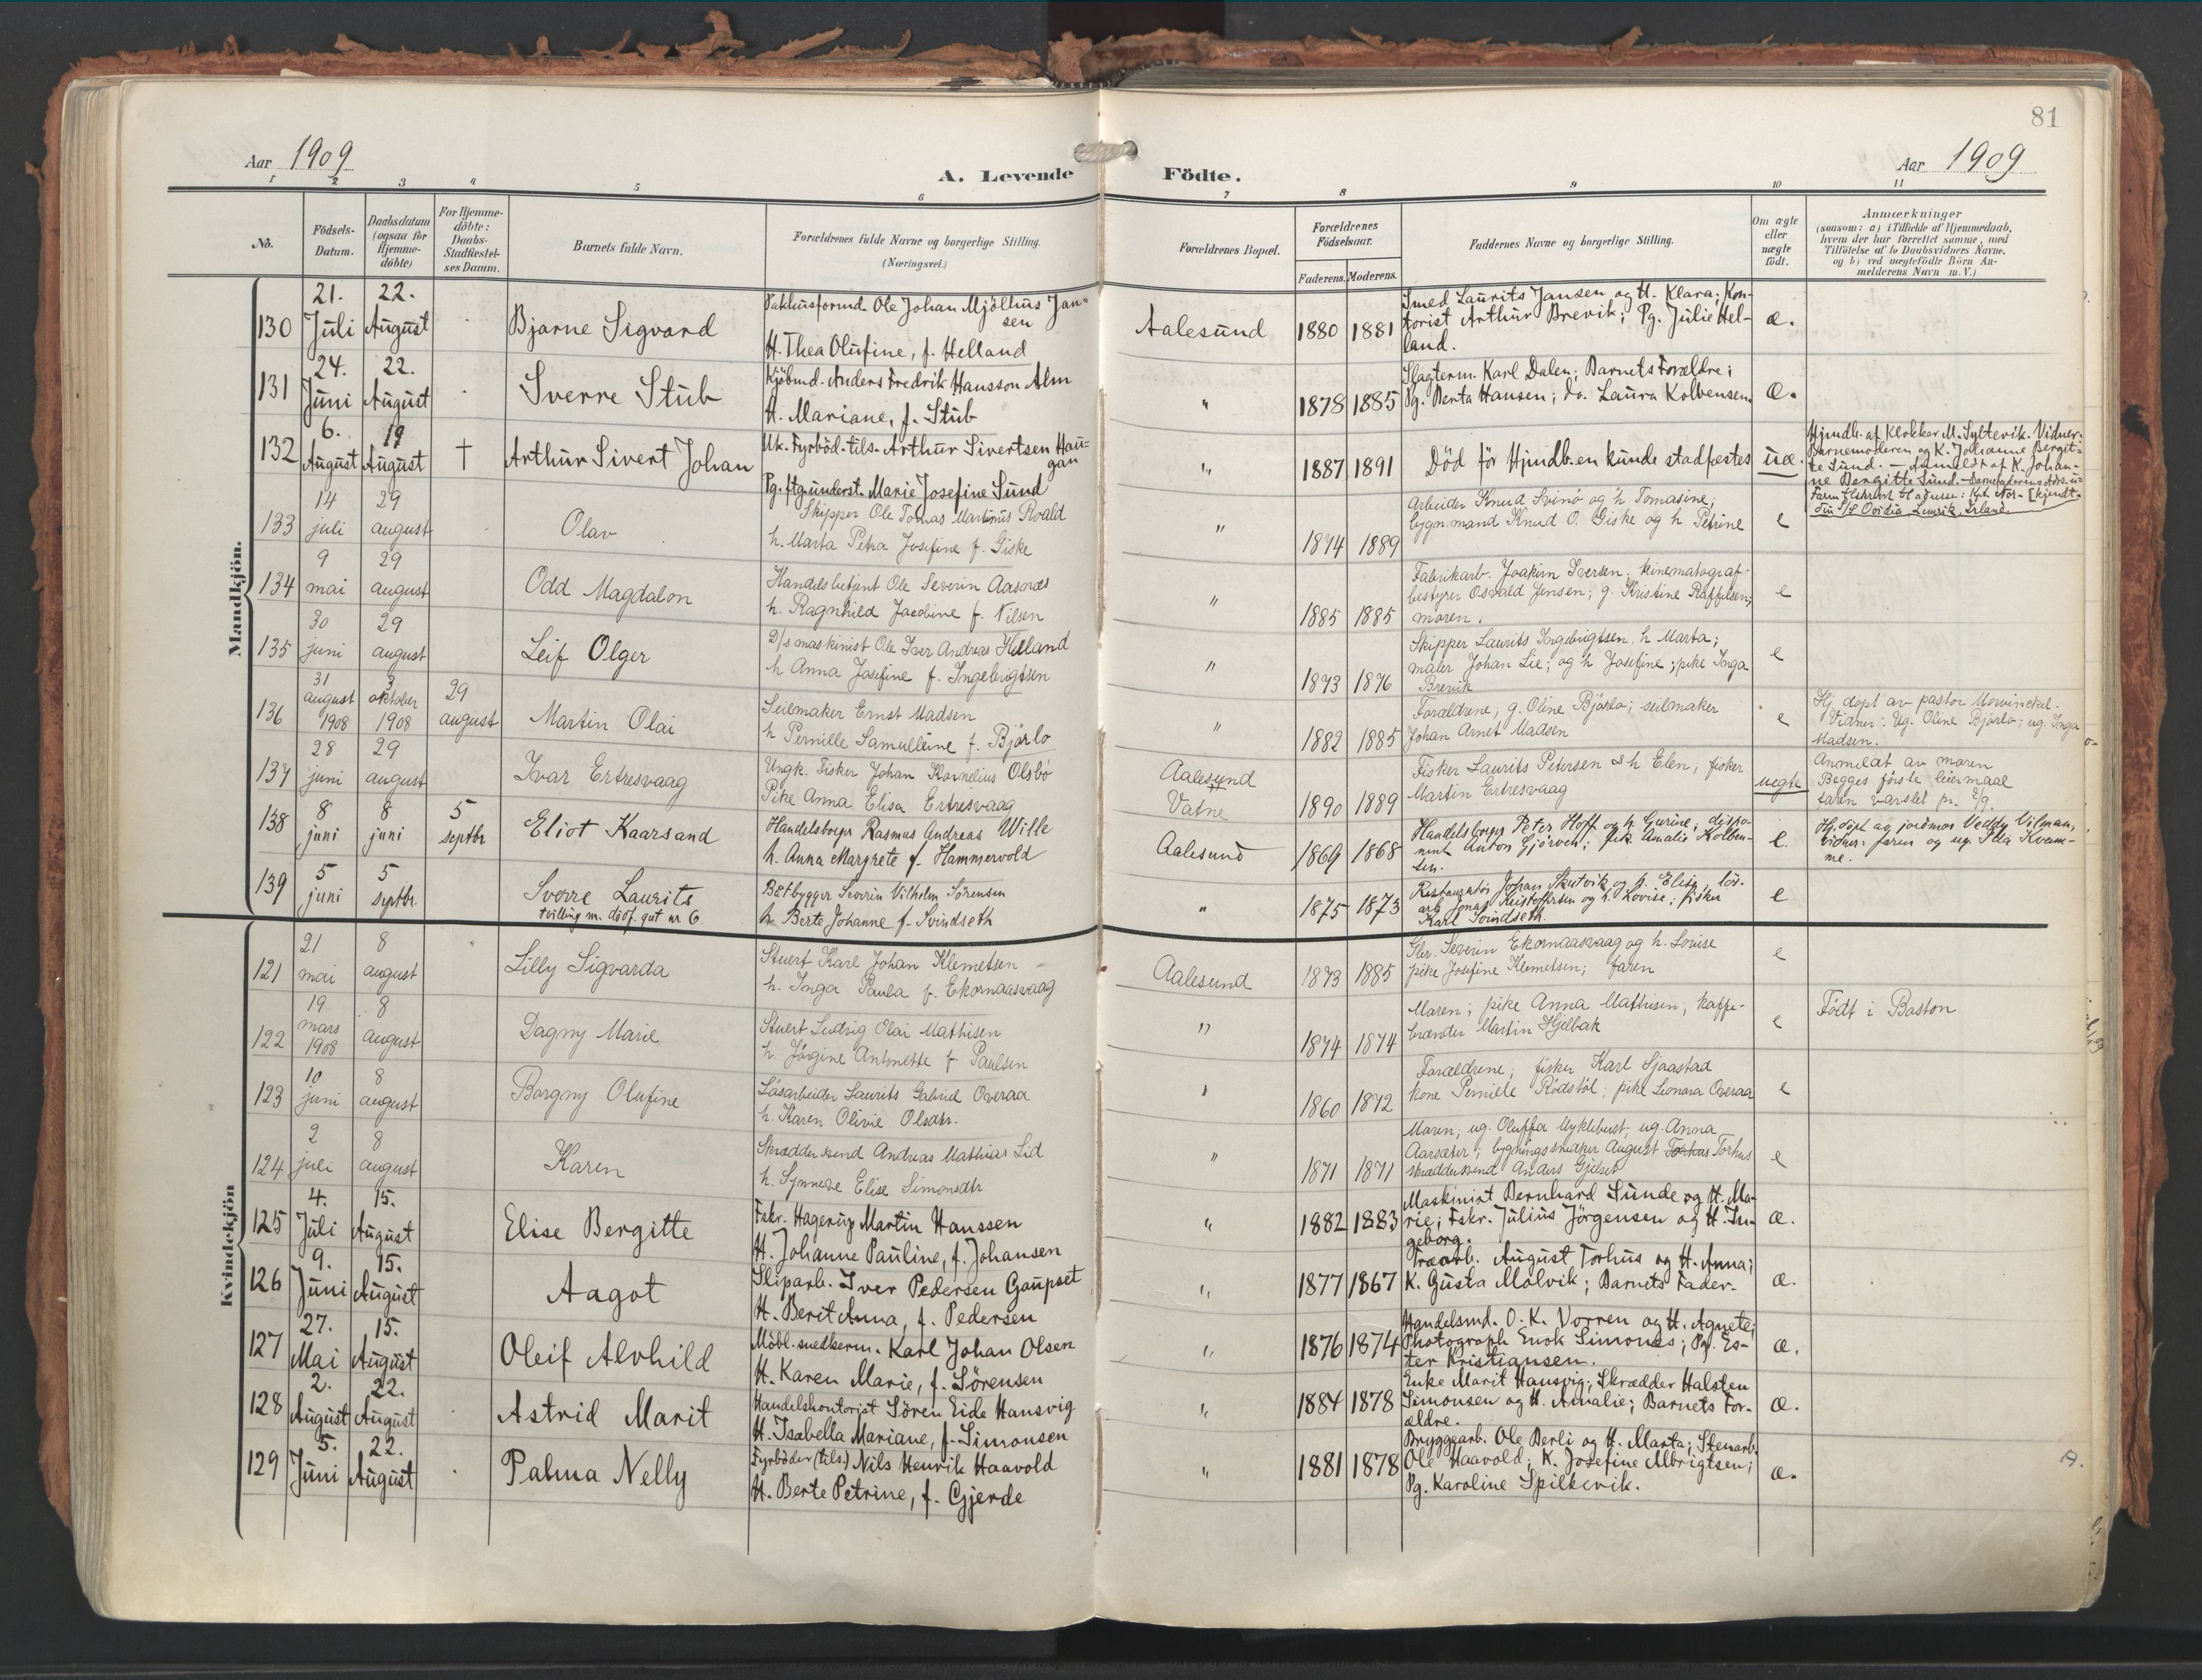 81
Aar 1909
A. Levende Födte.
Aar 1909
1 2 3 4 5 6 7 8 9 10 11
No.
Födsels-Datum.
Daabsdatum (ogsaa for Hjemme-döbte)
For Hjemme-döbte: Daabs-Stadfæstel-ses Datum.
Barnets fulde Navn.
Forældrenes fulde Navne og borgerlige Stilling.
(Næringsvei.)
Forældrenes Bopæl.
Forældrenes Födselsaar.
Faderens. Moderens.
Faddernes Navne og borgerlige Stilling.
Om ægte eller uægte födt.
Anmærkninger
(saasom: a) i Tilfælde af Hjemmedaab,
hvem der har forrettet samme, med
Tilföielse af to Daabsvidners Navne,
og b) ved uægtefödte Börn An-
melderens Navn m. V.)
Mandkjön.
130 21. Juli 22. August Bjarne Sigvard
Pakhusformd. Ole Johan Mjölhus Jan-
sen
H. Thea Olufine, f. Helland
Aalesund 1880 1881
Smed Laurits Jansen og H. Klara; Kon-
torist Arthur Brevik; Pg. Julie Hel-
land.
æ.
131 24. Juni 22. August Sverre Stub
Kjöbmd. Anders Fredrik Hansson Alm
H. Mariane, f. Stub
" 1878 1885
Slagterm. Karl Dalen; Barnets Forældre;
Pg. Berta Hansen; do. Laura Kolbensen.
æ.
132 6. August 19 August † Arthur Sivert Johan
Uk. Fyrböd. tils. Arthur Sivertsen Hau-
gan
Pg. ftg. underst. Marie Josefine Sund
" 1887 1891
Död för Hjmdb. en kunde stadfæstes
uæ.
Hjmdb. af Klokker M. Syltevik. Vidner:
Barnemoderen og K. Johanne Bergit-
te Sund. — Anmeldt af K. Johan-
ne Bergitte Sund.
S/S Ovidia, Limrik, Irland
133 14 juli 29 august Olav
Skipper Ole Tomas Martinus Roald
h. Marta Petra Josefine f. Giske
" 1874 1889
Arbeider Knud Svinö og h Tomasine;
bygn.mand Knud O. Giske og h Petrine
e
134 9 mai 29 august Odd Magdalon
Handelsbetjent Ole Severin Aasnæs
h. Ragnhild Jacobine f. Nilsen
" 1885 1885
Fabrikarb. Joakim Iversen; kinematograf-
bestyrer Osvald Jensen; g. Kristine Raffelsen;
moren.
e
135 30 juni 29 august Leif Olger
D/s maskinist Ole Iver Andreas Helland
h Anna Josefine f. Ingebrigtsen
" 1873 1876
Skipper Laurits Ingebrigtsen, h Marta;
maler Johan Lie; og h Josefine; pike Inga
Brevik
e
136 31 august 1908 3 oktober 1908 29 august Martin Olai
Seilmaker Ernst Madsen
h Pernille Samulleine f. Bjørlo
" 1882 1885
Forældrene; g. Oline Bjørlo; seilmaker
Johan Arnet Madsen
e
Hj. döpt av pastor Morvinckel.
Vidner: Ug. Oline Bjørlo; ug. Inga
Madsen.
137 28 juni 29 august Ivar Ertresvaag
Ungk. Fisker Johan Kornelius Olsbö
Pike Anna Elisa Ertresvaag
Aalesund
Vatne
1890 1889
Fisker Laurits Petersen & h Elen; fisker
Martin Ertresvaag
uegte
Anmeldt av moren
Begges förste leiermaal
faren varslet pr. 2/9.
138 8 juni 8 juni 5 septbr Eliot Kaarsand
Handelsborger Rasmus Andreas Wille
h. Anna Margrete f. Hammervold
Aalesund 1869 1868
Handelsborger Peter Hoff og h. Gurine; dispo-
nent Anton Gjörven; frk. Amalie Kolben-
sen.
e.
Hj. döpt av jordmor Veddy Vilman,
vidner: faren og ug. Illa Kvam-
me.
139 5 juni 5 septbr. Sverre Laurits
tvilling m. död f. gut nr 6.
Båtbygger Severin Vilhelm Sörensen
h. Berte Johanne f. Svindseth
" 1875 1873
Restauratör Johan Skutvik og h. Elise, lös-
arb. Jonas Kristoffersen og h. Lovise; fisker
Karl Svindseth.
e
Kvindekjön
121 21 mai 8 august Lilly Sigvarda
Stuert Karl Johan Klemetsen
h. Inga Paula f. Ekornaasvaag
Aalesund 1873 1885
Gbr. Severin Ekornaasvaag og h. Louise
pike Josefine Klemetsen; faren
e
122 19 mars 1908 8 august Dagny Marie
Stuert Ludvig Olai Mathisen
h. Jörgine Antonette f Paulsen
" 1874 1874
Moren; pike Anna Mathisen; kaffe-
brænder Martin Hjelbak
e
Födt i Boston
123 10 juni 8 august Borgny Olufine
Lösarbeider Laurits Gabriel Overaa
h. Karen Olivie Olsdtr.
" 1860 1872
Forældrene; fisker Karl Sjaastad
kone Pernille Rödstöl; pike Leonora Overaa
e
124 2 juli 8 august Karen
Skræddersvend Andreas Mathias Lid
h. Synneve Elise Simonsdtr
" 1871 1871
Moren; ug. Oluffa Myklebust; ug. Anna
Aarsæter; bygningssnekker August Torhus Torhus
skræddersvend Anders Gjelset
e
125 4. Juli 15. August Elise Bergitte
Fskr. Hagerup Martin Hanssen
H. Johanne Pauline, f. Johansen
" 1882 1883
Maskinist Bernhard Sunde og H. Ma-
rie; Fskr. Julius Jörgensen og H. In-
geborg.
æ.
126 9. Juni 15. August Aagot
Sliparb. Iver Pedersen Gaupset
H. Berit Anna, f. Pedersen
" 1877 1867
Træarb. August Torhus og H. Anna;
K. Gusta Molvik; Barnets Fader.
æ.
127 27. Mai 15. August Oleif Alvhild
Möbl. snedkerm. Karl Johan Olsen
H. Karen Marie, f. Sörensen
" 1876 1874
Handelsmd. O. K. Vorren og H. Agnete;
Photograph Enok Simones; Pg. Es-
ter Kristiansen.
æ.
128 2. August 22. August Astrid Marit
Handelskontorist Sören Eide Hansvig
H. Isabella Mariane, f. Simonsen
" 1884 1878
Enke Marit Hansvig; Skrædder Halsten
Simonsen og H. Amalie; Barnets For-
ældre.
æ.
129 5. Juni 22. August Palma Nelly
Fyrböder (tils.) Nils Henrik Haavold
H. Berte Petrine, f. Gjerde
" 1881 1878
Bryggearb. Ole Berli og H. Marta; Stenarb.
Ole Haavold; K. Josefine Albrigtsen;
Pg. Karoline Spilkevik.
æ.